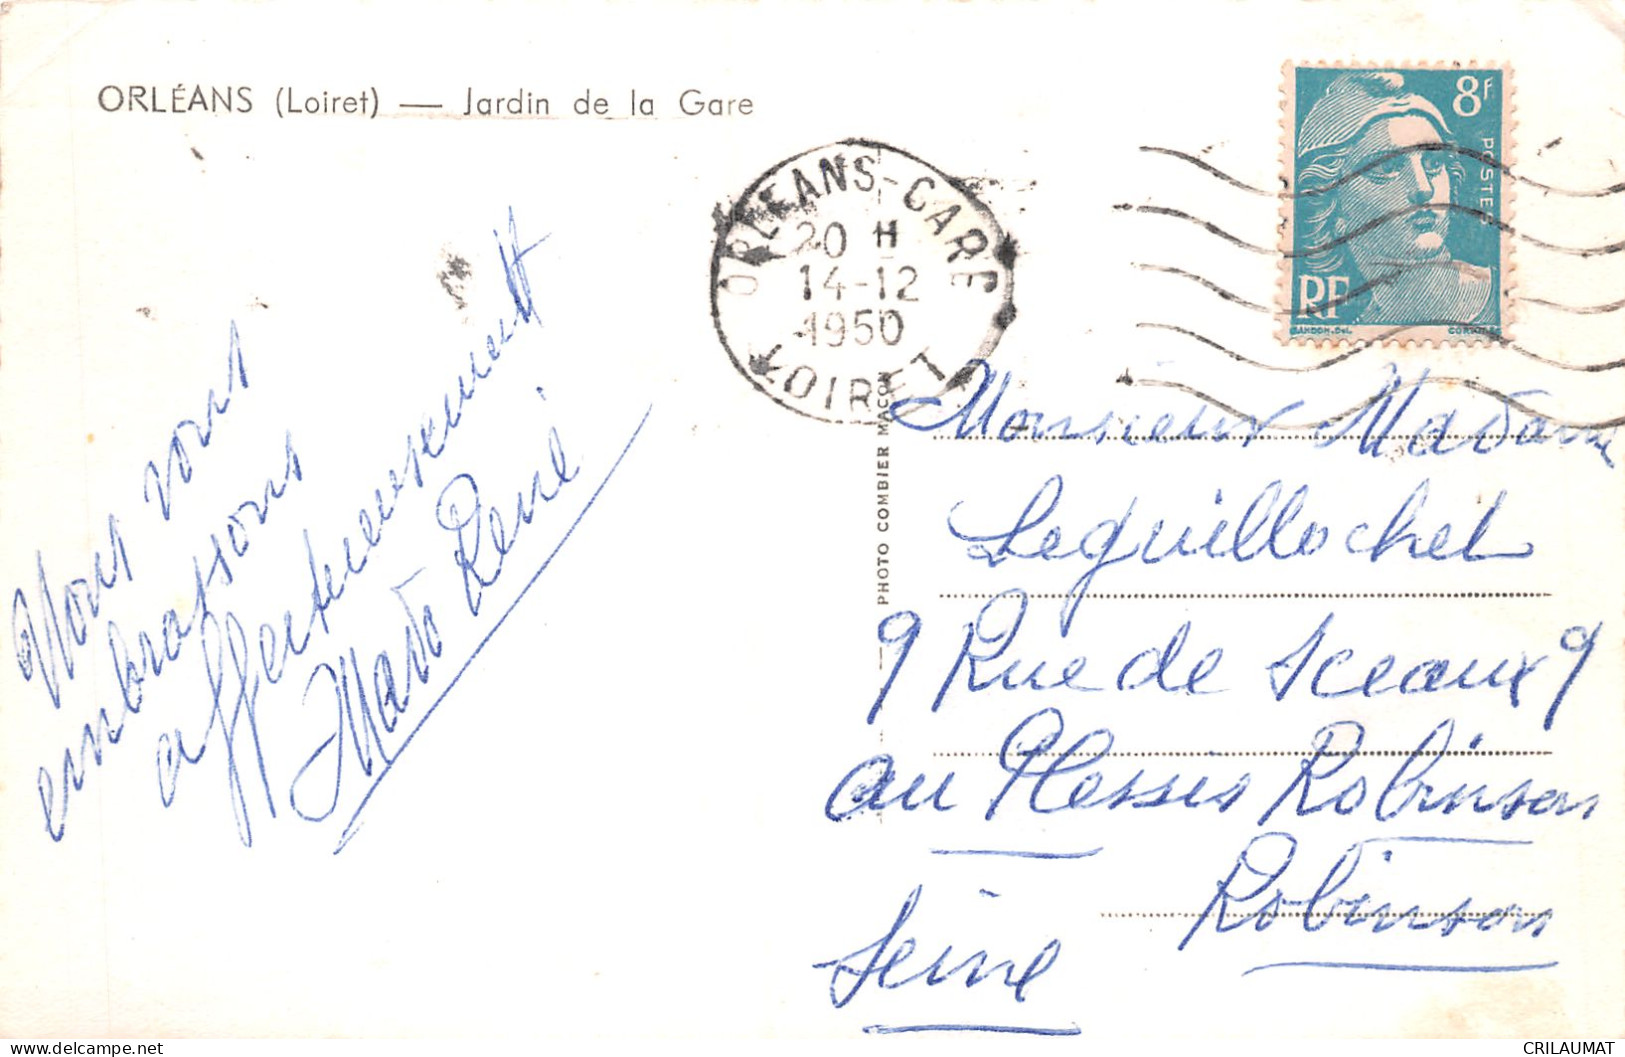 ORLÉANS (Loiret) — Jardin de la Gare
8F
POSTES
RF
GANDON.Del.
ORLEANS-GARE
20 H
14-12
1950
LOIRET
PHOTO COMBIER MACON
Nous vous
embrassons
affectueusement
René
Monsieur Madame
Leguillochet
9 Rue de Sceaux 9
au Plessis Robinson
Robinson
Seine
CRILAUMAT